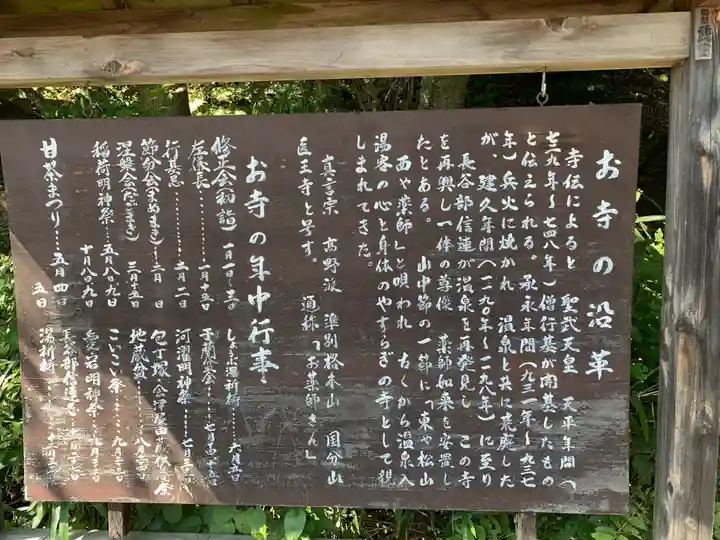 お寺の沿革
寺伝によると 聖武天皇 天平年間(
七二九年〜七四八年)僧行基が開基したもの
と伝えられる。承永年間(九三一年〜九三七
年)兵火に焼かれ 温泉と共に荒廃した
が、建久年間(一一九〇年〜一一九八年)に至り
長谷部信連が温泉を再発見し この寺
を再興し一体の尊像 薬師如来を安置し
たとある。 山中節の一節に「東や松山
西や薬師」と唄われ 古くから温泉入
湯客の心と身体のやすらぎの寺として親
しまれてきた。
真言宗 高野派 準別格本山 国分山
医王寺と号す。 通称「お薬師さん」
お寺の年中行事
修正会(初詣) 一月一日〜三日
左義長 一月十五日
行基忌 二月二日
節分会(まめまき) 二月 日
涅槃会(だごまき) 三月十五日
稲荷明神祭 五月八、九日
十月八、九日
甘茶まつり 五月四日
五日
しょうぶ湯祈祷 六月五日
于蘭盆会
河濯明神祭 七月三
地蔵盆 八月二四日
こいこい祭 九月二三日
愛宕明神祭
長谷部信連忌
湯祈祷